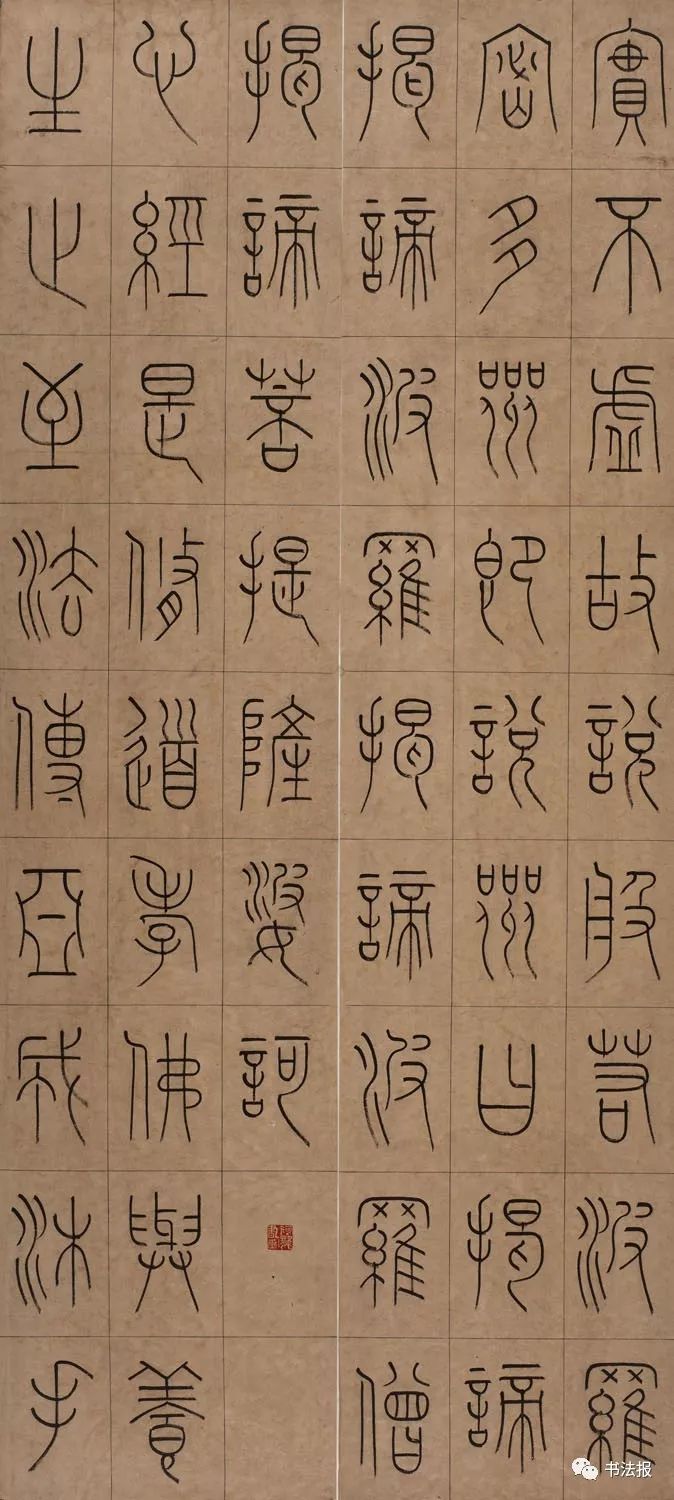 實不虛故說般若波羅
密多咒即說咒曰揭諦
揭諦波羅揭諦波羅僧
揭諦菩提薩婆訶
心經是脩道孝佛與養
生之至法傅亞成沐手
书法报